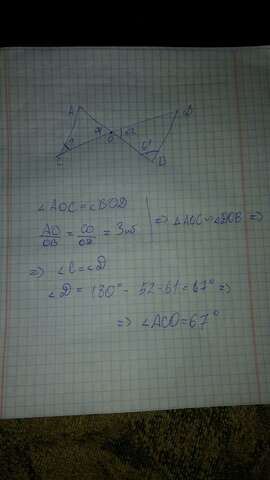 A
D
O
C
B
∠AOC = ∠BOD
AO/OB = CO/OD = 3 | => ∠AOC ∾ ∠DOB =>
=> ∠C = ∠D
∠D = 180° - 52 - 61 = 67° =>
=> ∠ACO = 67°